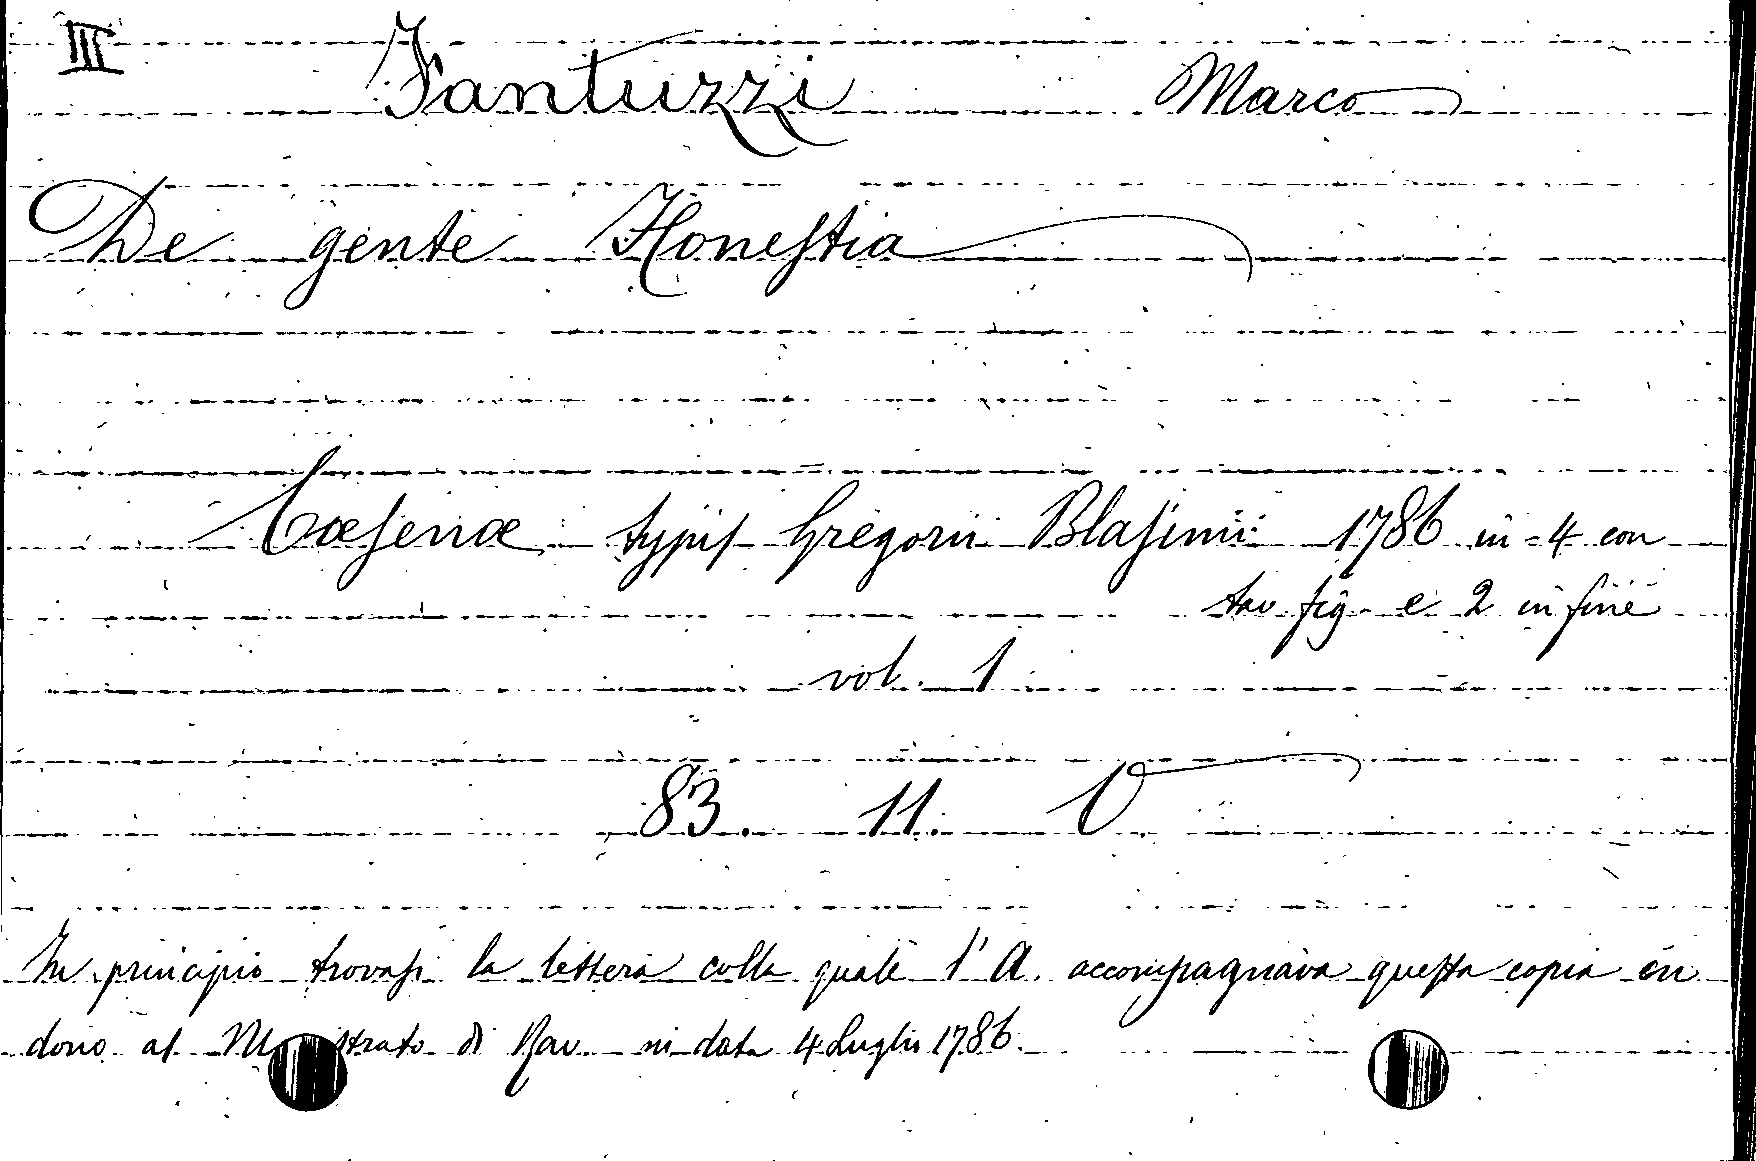 III Fantuzzi Marco
De gente Honestia
Cæsenæ typis Gregorii Blasinii 1786 in-4 con
tav fig. e 2 in fine
vol. 1
83. 11. V
In principio trovasi la lettera colla quale l'A. accompagnava questa copia in
dono al di Rav. in data 4 Luglio 1786.